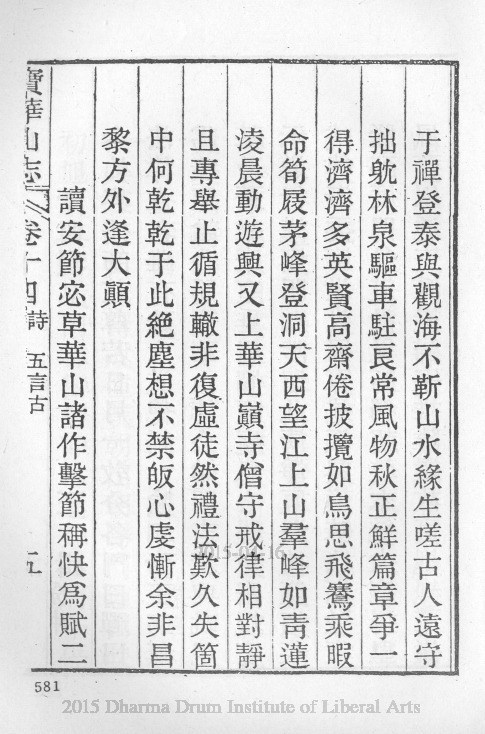 于禪登泰與觀海不斬山水緣生嗟古人遠守
拙躭林泉驅車駐良常風物秋正鮮篇章爭一
得濟濟多英賢高齋倦披攬如鳥思飛騫乘暇
命筍屐茅峰登洞天西望江上山羣峰如青蓮
凌晨動遊興又上華山巔寺僧守戒律相對靜
且專舉止循規轍非復虛徒然禮法歎久失箇
中何乾乾于此絕塵想不禁皈心虔慚余非昌
黎方外逢大顚
讀安節宓草華山諸作擊節稱快爲賦二
寶華山志 卷十四 詩 五言古 五
581
2015 Dharma Drum Institute of Liberal Arts